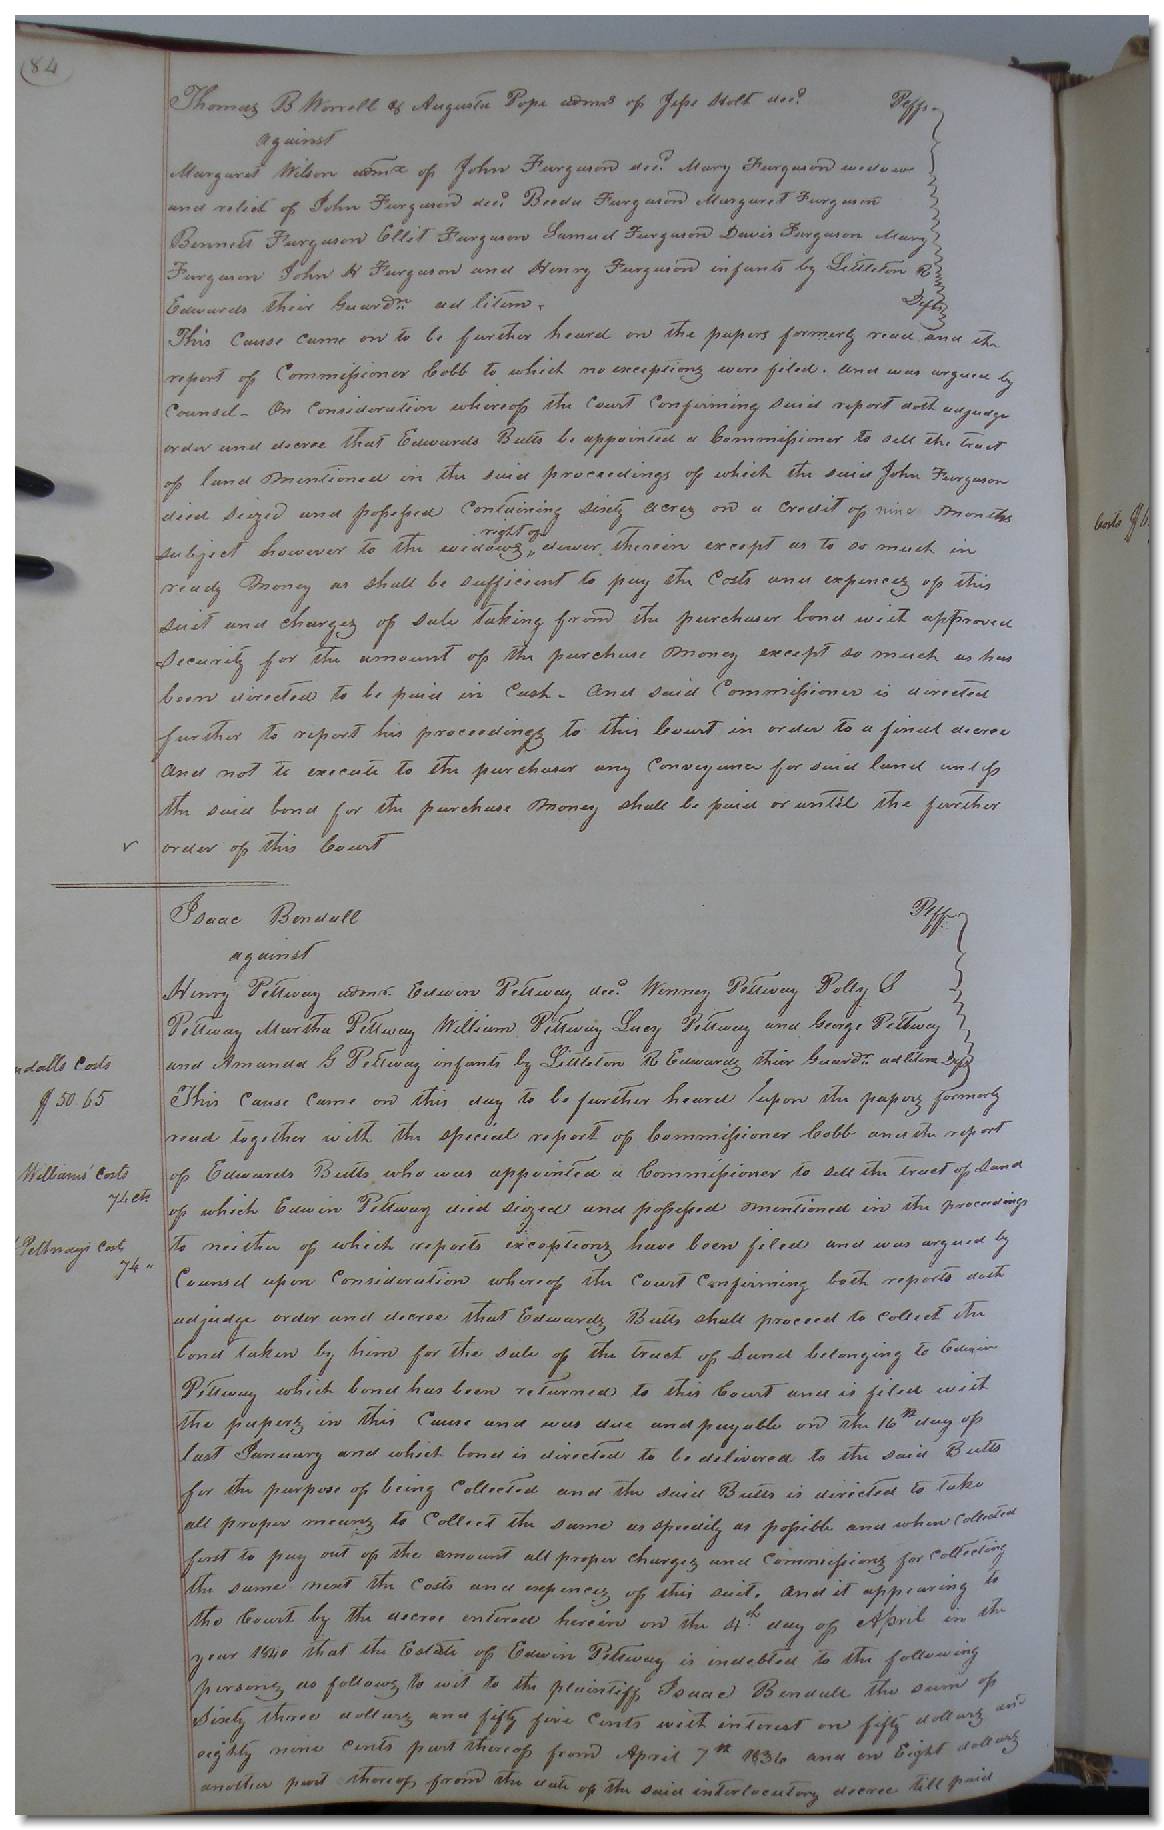 84
Thomas B Worrell & Augustu Pope admrs of Jesse Holt decd. Peffs
against
Margaret Wilson admx of John Furguson decd. Mary Furguson wedow
and relict of John Furguson decd. Beedu Furguson Margaret Furguson
Bennett Furguson Ellit Furguson Samuel Furguson Davis Furguson Mary
Furguson John H Furguson and Henry Furguson infants by Littleton R
Edwards their Guardn ad litem. Defts
This Cause came on to be further heard on the papers formerly read and the
report of Commissioner Cobb to which no exceptions were filed. and was argued by
Counsel - On Consideration whereof the Court Confirming said report doth adjudge
order and decree that Edwards Butts be appointed a Commissioner to sell the tract
of land Mentioned in the said proceedings of which the said John Furguson
died siezed and possessed Containing sixty acres on a Credit of nine Months
subject however to the widows right of dower therein except as to so much in
ready Money as shall be sufficient to pay the Costs and expences of this
suit and charges of sale taking from the purchaser bond with approved
Security for the amount of the purchase Money except so much as has
been directed to be paid in Cash - And said Commissioner is directed
further to report his proceedings to this Court in order to a final decree
And not to execute to the purchaser any Conveyance for said land unless
the said bond for the purchase Money shall be paid or until the further
order of this Court
Isaac Bendall Plff
against
Henry Pettway admr. Edwin Pettway decd. Wenney Pettway Polly S
Pettway Martha Pettway William Pettway Lucy Pettway and George Pettway
and Amanda G Pettway infants by Littleton R Edwards their Guardn ad litem Defts
ndalls Costs
$50.65
This Cause came on this day to be further heard upon the papers formerly
read together with the special report of Commissioner Cobb and the report
Williams' Costs
74 cts
of Edwards Butts who was appointed a Commissioner to sell the tract of Land
of which Edwin Pettway died siezed and possessed mentioned in the proceedings
Pettways Costs
74 "
to neither of which reports exceptions have been filed and was argued by
Counsel upon Consideration whereof the Court Confirming both reports doth
adjudge order and decree that Edwards Butts shall proceed to Collect the
bond taken by him for the sale of the tract of Land belonging to Edwin
Pettway which bond has been returned to this Court and is filed with
the papers in this Cause and was due and payable on the 16th day of
last January and which bond is directed to be delivered to the said Butts
for the purpose of being Collected and the said Butts is directed to take
all proper means to Collect the same as speedily as possible and when Collected
first to pay out of the amount all proper charges and Commissions for Collecting
the same next the Costs and expences of this suit. And it appearing to
the Court by the decree entered herein on the 4th day of April in the
year 1840 that the Estate of Edwin Pettway is indebted to the following
persons as follows to wit to the plaintiff Isaac Bendall the sum of
Sixty three dollars and fifty five Cents with interest on fifty dollars and
eighty nine Cents part thereof from April 7th 1836 and on Eight dollars
another part thereof from the date of the said interlocutory decree till paid
Costs $6